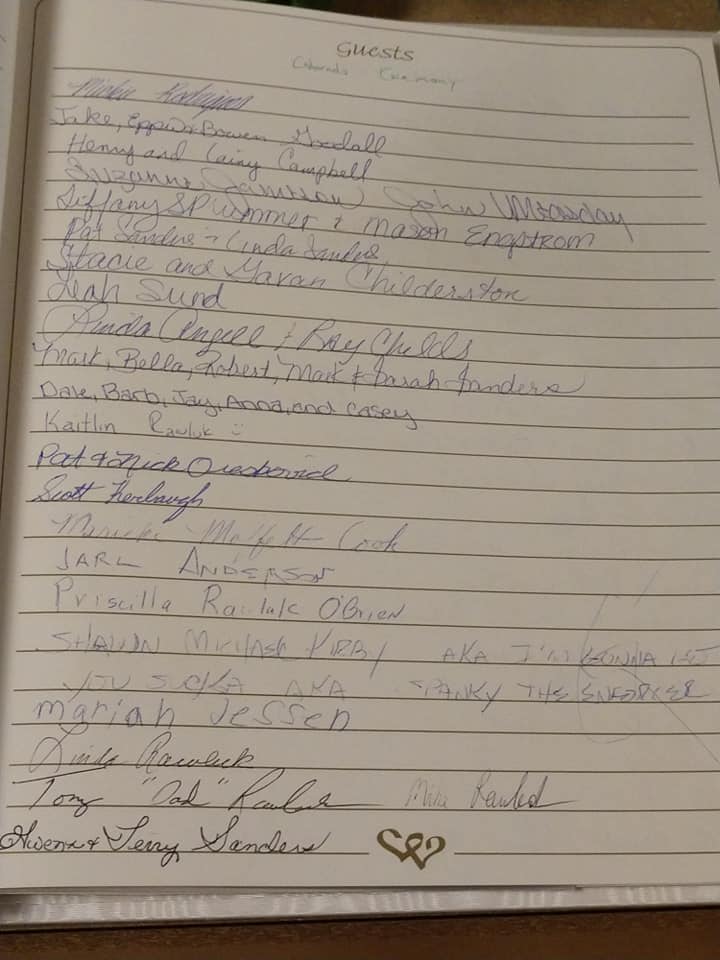 Guests
Colorado Ceremony
Rodriguez
Jake, Eppie & Bowen Goodall
Henry and Lainy Campbell
Suzanne Jamison John
Tiffany Plummer & Mason Engstrom
Pat Sanders & Linda Sanders
Stacie and Garan Childerston
Leah Sund
Linda Angell & Roy Childs
Mark, Bella, Robert, Mark & Sarah Sanders
Dale, Barb, Jay, Anna, and Casey
Kaitlin Rawluk :)
Pat & Nick
Scott Kerbaugh
Moffett Cook
JARL ANDERSON
Priscilla Rawluk O'Brien
SHAWN KIRBY AKA I'M GONNA GET
YOU SUCKA AKA SPANKY THE ENFORCER
Mariah Jessen
Linda Rawluk
Tony "Dad" Rawluk Mike Rawluk
Gwenn & Terry Sanders